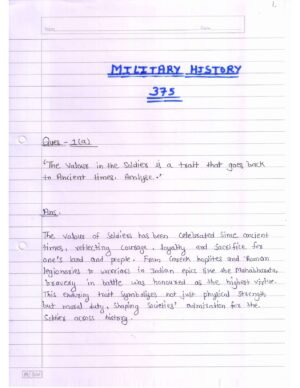 1
Date
MILITARY HISTORY
375
Ques - 1(a)
"The valour in the Soldier is a trait that goes back
to Ancient times. Analyze."
Ans.
The valour of Soldiers has been celebrated since ancient
times, reflecting courage, loyalty and sacrifice for
one's land and people. From Greek hoplites and Roman
legionaries to warriors in Indian epics like the Mahabharata,
bravery in battle was honoured as the highest virtue.
This enduring trait symbolizes not just physical strength
but moral duty, shaping societies' admiration for the
Soldier across history.